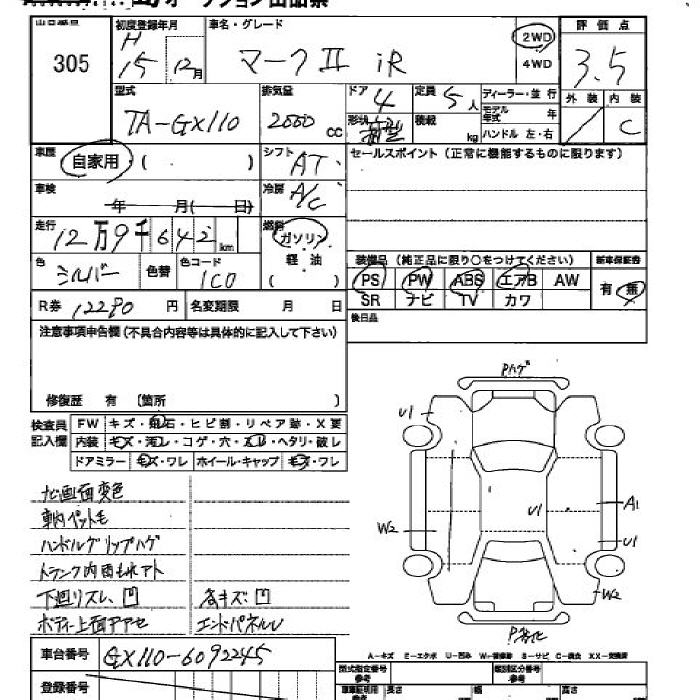 オークション出品票
出品番号 初度登録年月 車名・グレード 評価点
305 H 15 12月 マークⅡ iR 2WD 4WD 3.5
外装 内装
C
型式 排気量 ドア 定員 ディーラー・並行
TA-GX110 2000 cc 4 5人 モデル年式 年
形状 箱型 積載 kg ハンドル 左・右
車歴 自家用 ( ) シフト AT セールスポイント (正常に機能するものに限ります)
車検 年 月( 日) 冷房 A/C
走行 12万9千642km 燃料 ガソリン 軽油
装備品 (純正品に限り○をつけてください) 新車保証書
色 シルバー 色替 色コード 1C0
PS PW ABS エアB AW 有・無
SR ナビ TV カワ
R券 12290 円 名変期限 月 日
後日品
注意事項申告欄(不具合内容等は具体的に記入して下さい)
修復歴 有 〔箇所 〕
検査員記入欄 FW キズ・飛石・ヒビ割・リペア跡・X要
内装 キズ・汚レ・コゲ・穴・スレ・ヘタリ・破レ
ドアミラー キズ・ワレ ホイール・キャップ キズ・ワレ
Pハゲ
U1
U1
A1
W2
U1
W2
ナビ画面変色
車内ペット毛
ハンドルグリップハゲ
トランク内雨もれアト
下廻リスレ、凹 各キズ凹
ボディー上面アアセ エンドパネルU
車台番号 GX110-6092245
A-キズ E-エクボ U-凹み W-補修跡 S-サビ C-腐食 XX-交換済
登録番号
型式指定番号 類別区分番号
長さ 幅 高さ